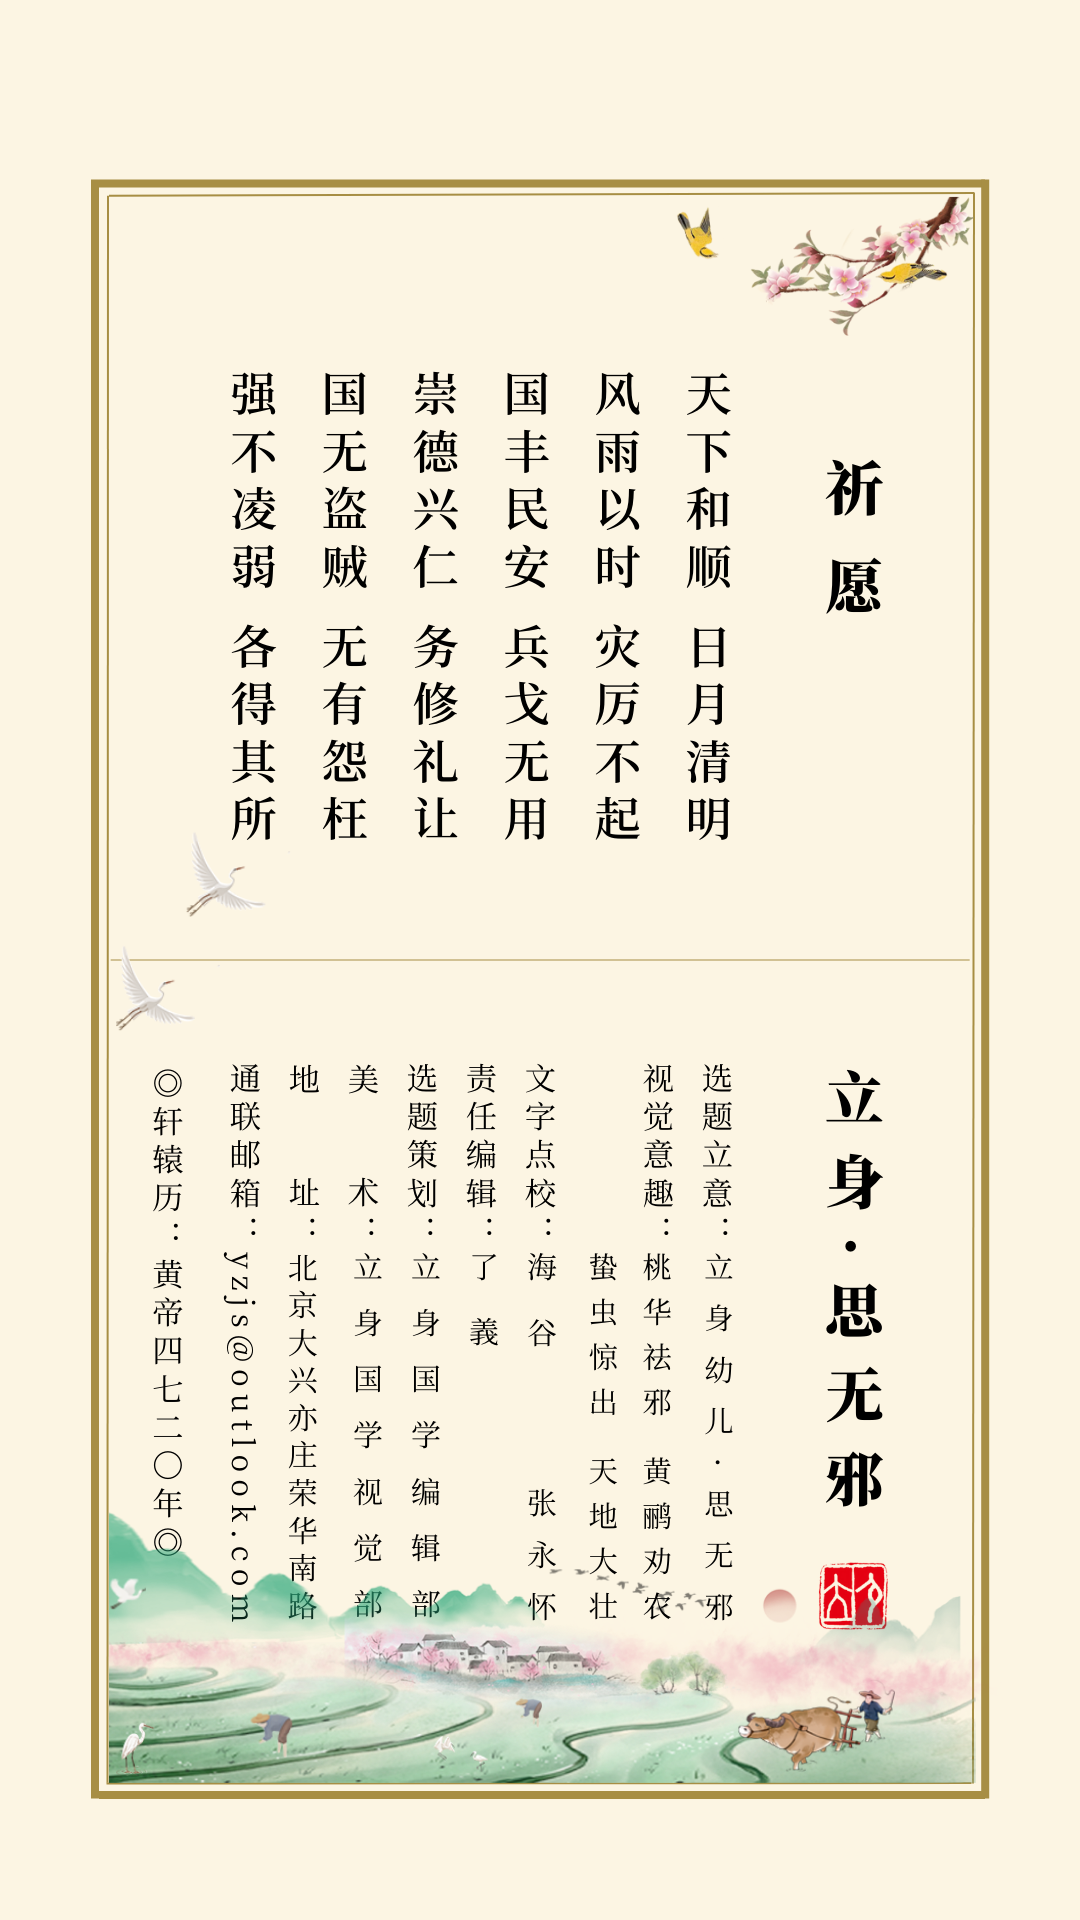 祈愿
天下和顺 日月清明
风雨以时 灾厉不起
国丰民安 兵戈无用
崇德兴仁 务修礼让
国无盗贼 无有怨枉
强不凌弱 各得其所
立身·思无邪
选题立意：立身幼儿·思无邪
视觉意趣：桃华祛邪 黄鹂劝农
蛰虫惊出 天地大壮
文字点校：海谷 张永怀
责任编辑：了義
选题策划：立身国学编辑部
美术：立身国学视觉部
地址：北京大兴亦庄荣华南路
通联邮箱：yzjs@outlook.com
◎轩辕历：黄帝四七二〇年◎